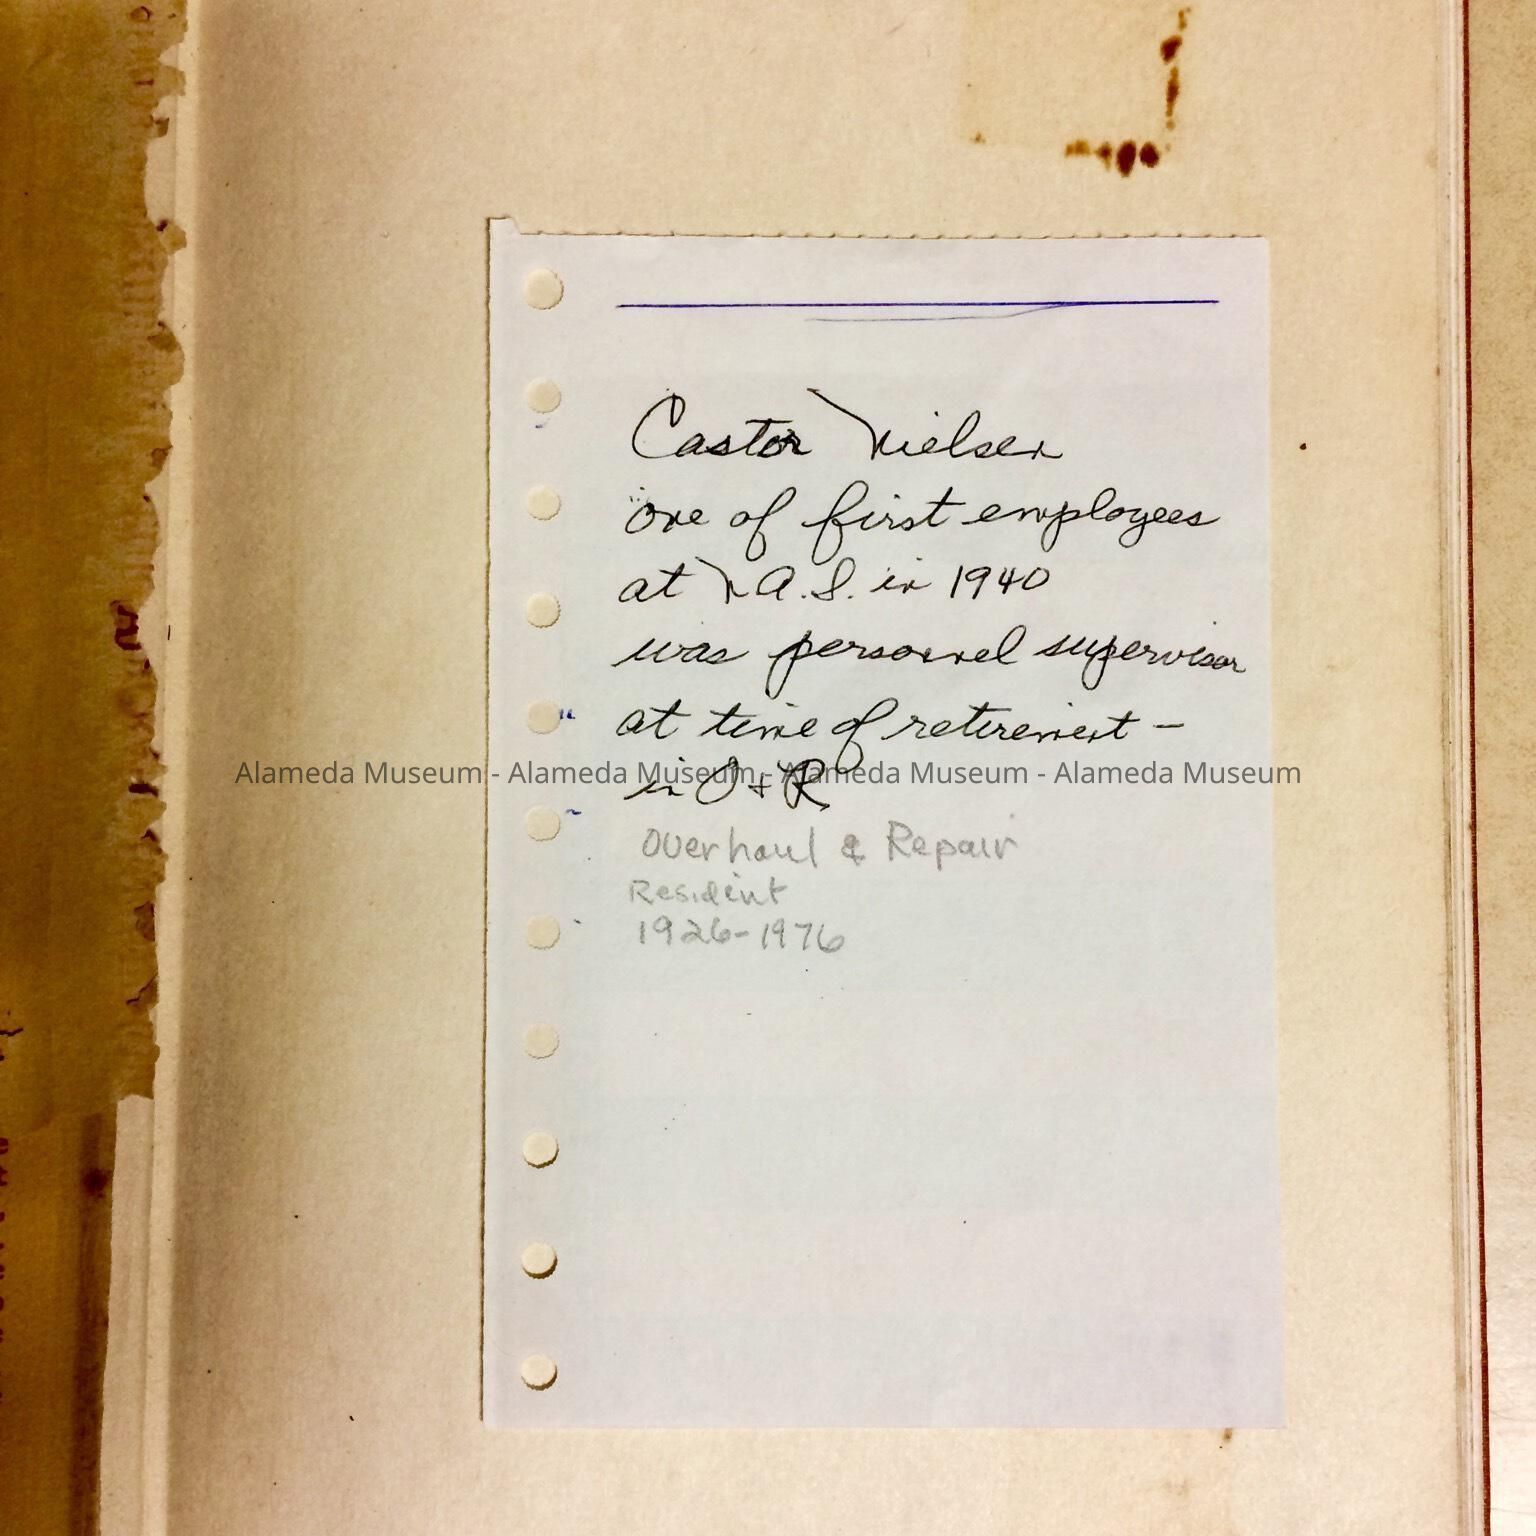 Castor Nielsen
one of first employees
at N.A.S. in 1940
was personnel supervisor
at time of retirement –
in O + R
Alameda Museum - Alameda Museum - Alameda Museum - Alameda Museum
Overhaul & Repair
Resident
1926-1976